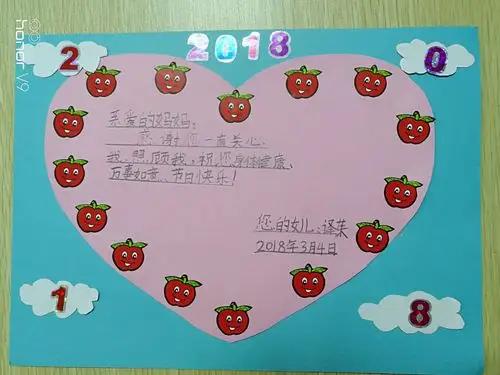 honor V9
2018
2
0
亲爱的妈妈:
感谢您一直关心、
我、照顾我,祝您身体健康、
万事如意、节日快乐!
您的女儿:译茱
2018年3月4日
1
8